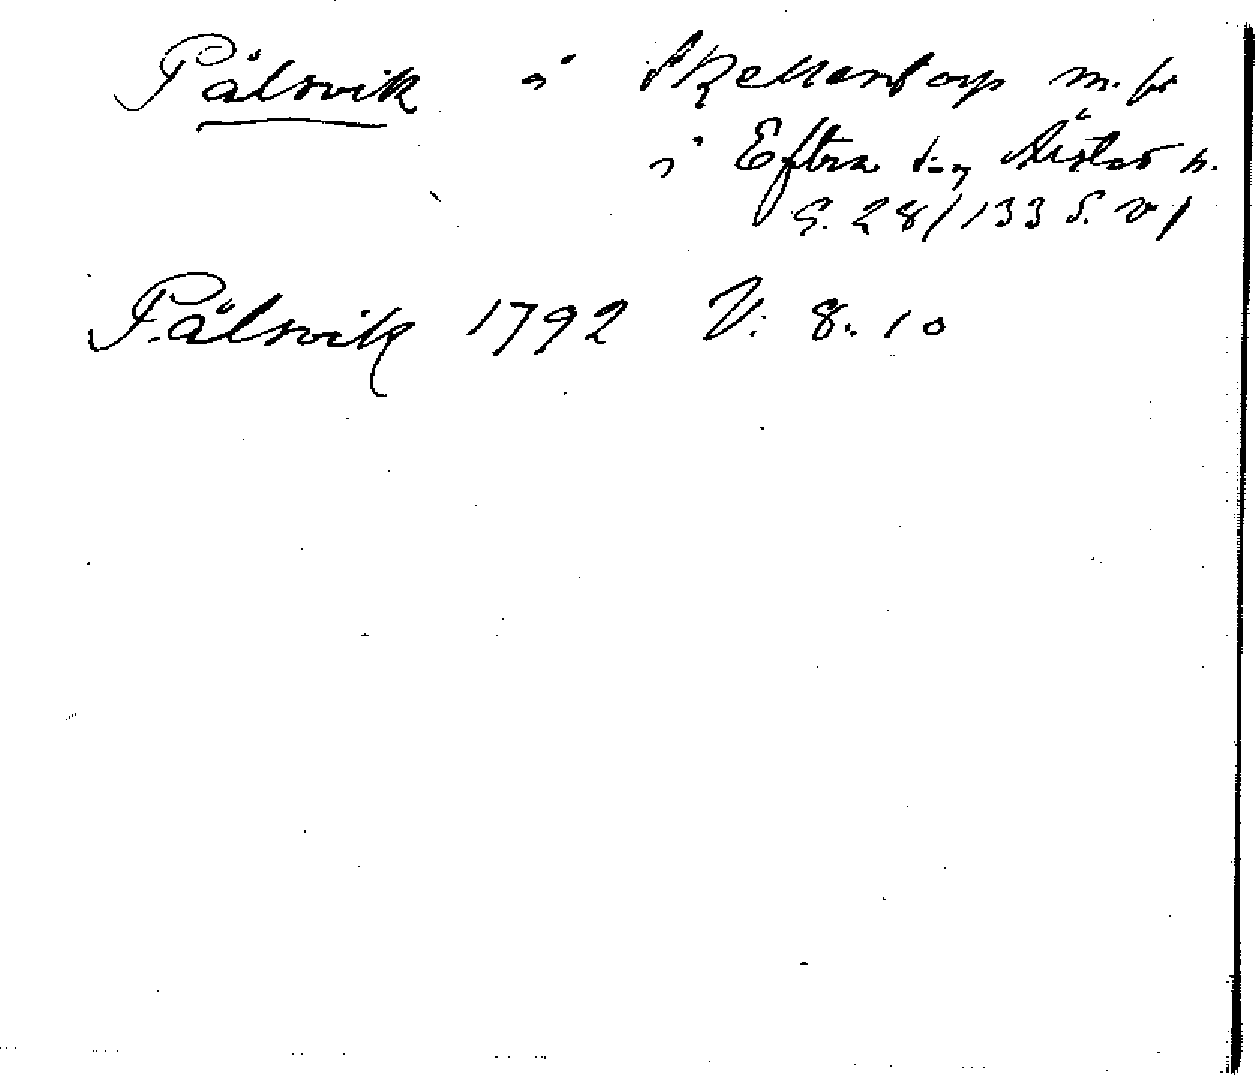 Pålsvik i Skellentorp m. fl.
i Eftra s:n, Årstad h.
G. 28/133 S. V /
Pålsvik 1792 V: 8. 10